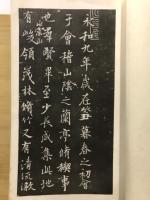 永和九年歲在癸丑暮春之初會
于會稽山陰之蘭亭脩禊事
也群賢畢至少長咸集此地
崇山
有峻領茂林脩竹又有清流激